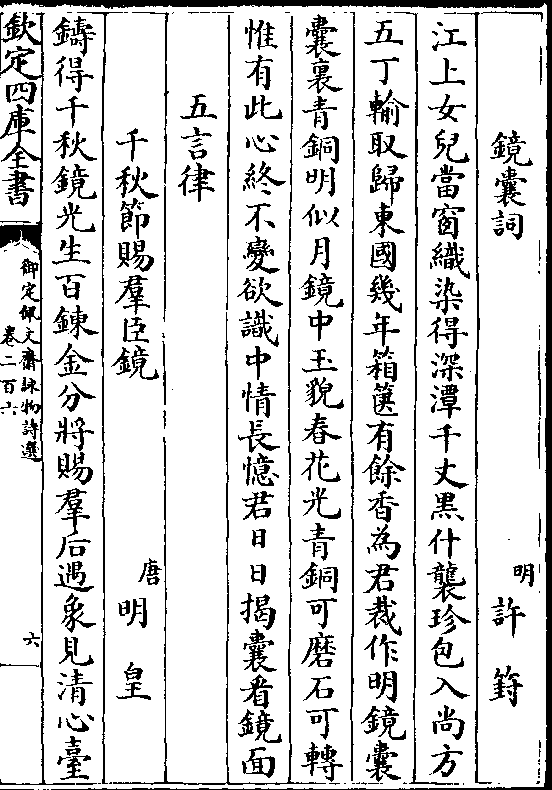 鏡囊詞 明 許䇓
江上女兒當窗織染得深潭千丈黑什襲珍包入尚方
五丁輸取歸東國幾年箱篋有餘香為君裁作明鏡囊
囊裏青銅明似月鏡中玉貌春花光青銅可磨石可轉
惟有此心終不變欲識中情長憶君日日揭囊看鏡面
五言律
千秋節賜羣臣鏡 唐 明皇
鑄得千秋鏡光生百鍊金分將賜羣后遇象見清心臺
欽定四庫全書
御定佩文齋詠物詩選
卷二百六
六